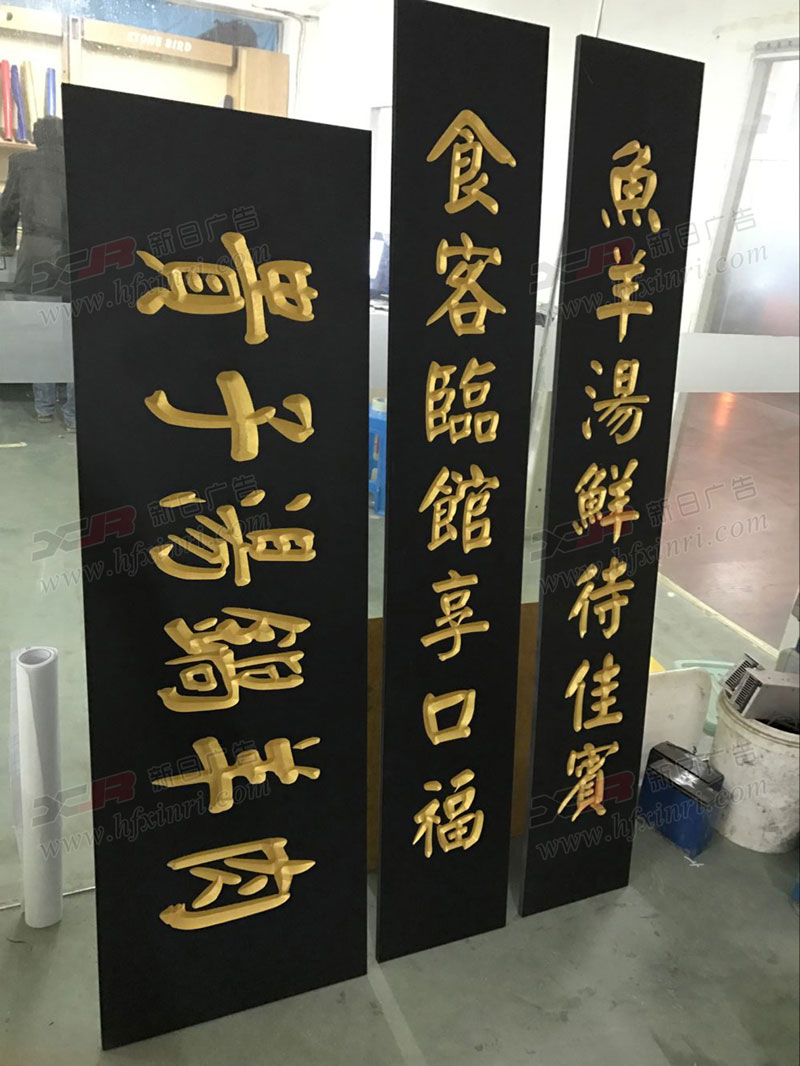 貴子湯鍋羊肉
食客臨館享口福
魚羊湯鮮待佳賓
BIRD
新日广告
www.hfxinri.com
新日广告
www.hfxinri.com
新日广告
www.hfxinri.com
新日广告
www.hfxinri.com
新日广告
www.hfxinri.com
新日广告
www.hfxinri.com